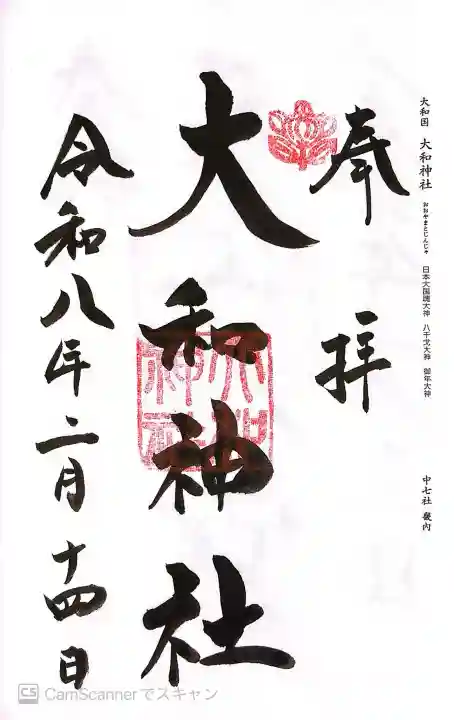 大和国 大和神社 おおやまとじんじゃ 日本大国魂大神 八千戈大神 御年大神 中七社 畿内
奉拝
大和神社
大和神社
令和八年二月十四日
CS CamScannerでスキャン